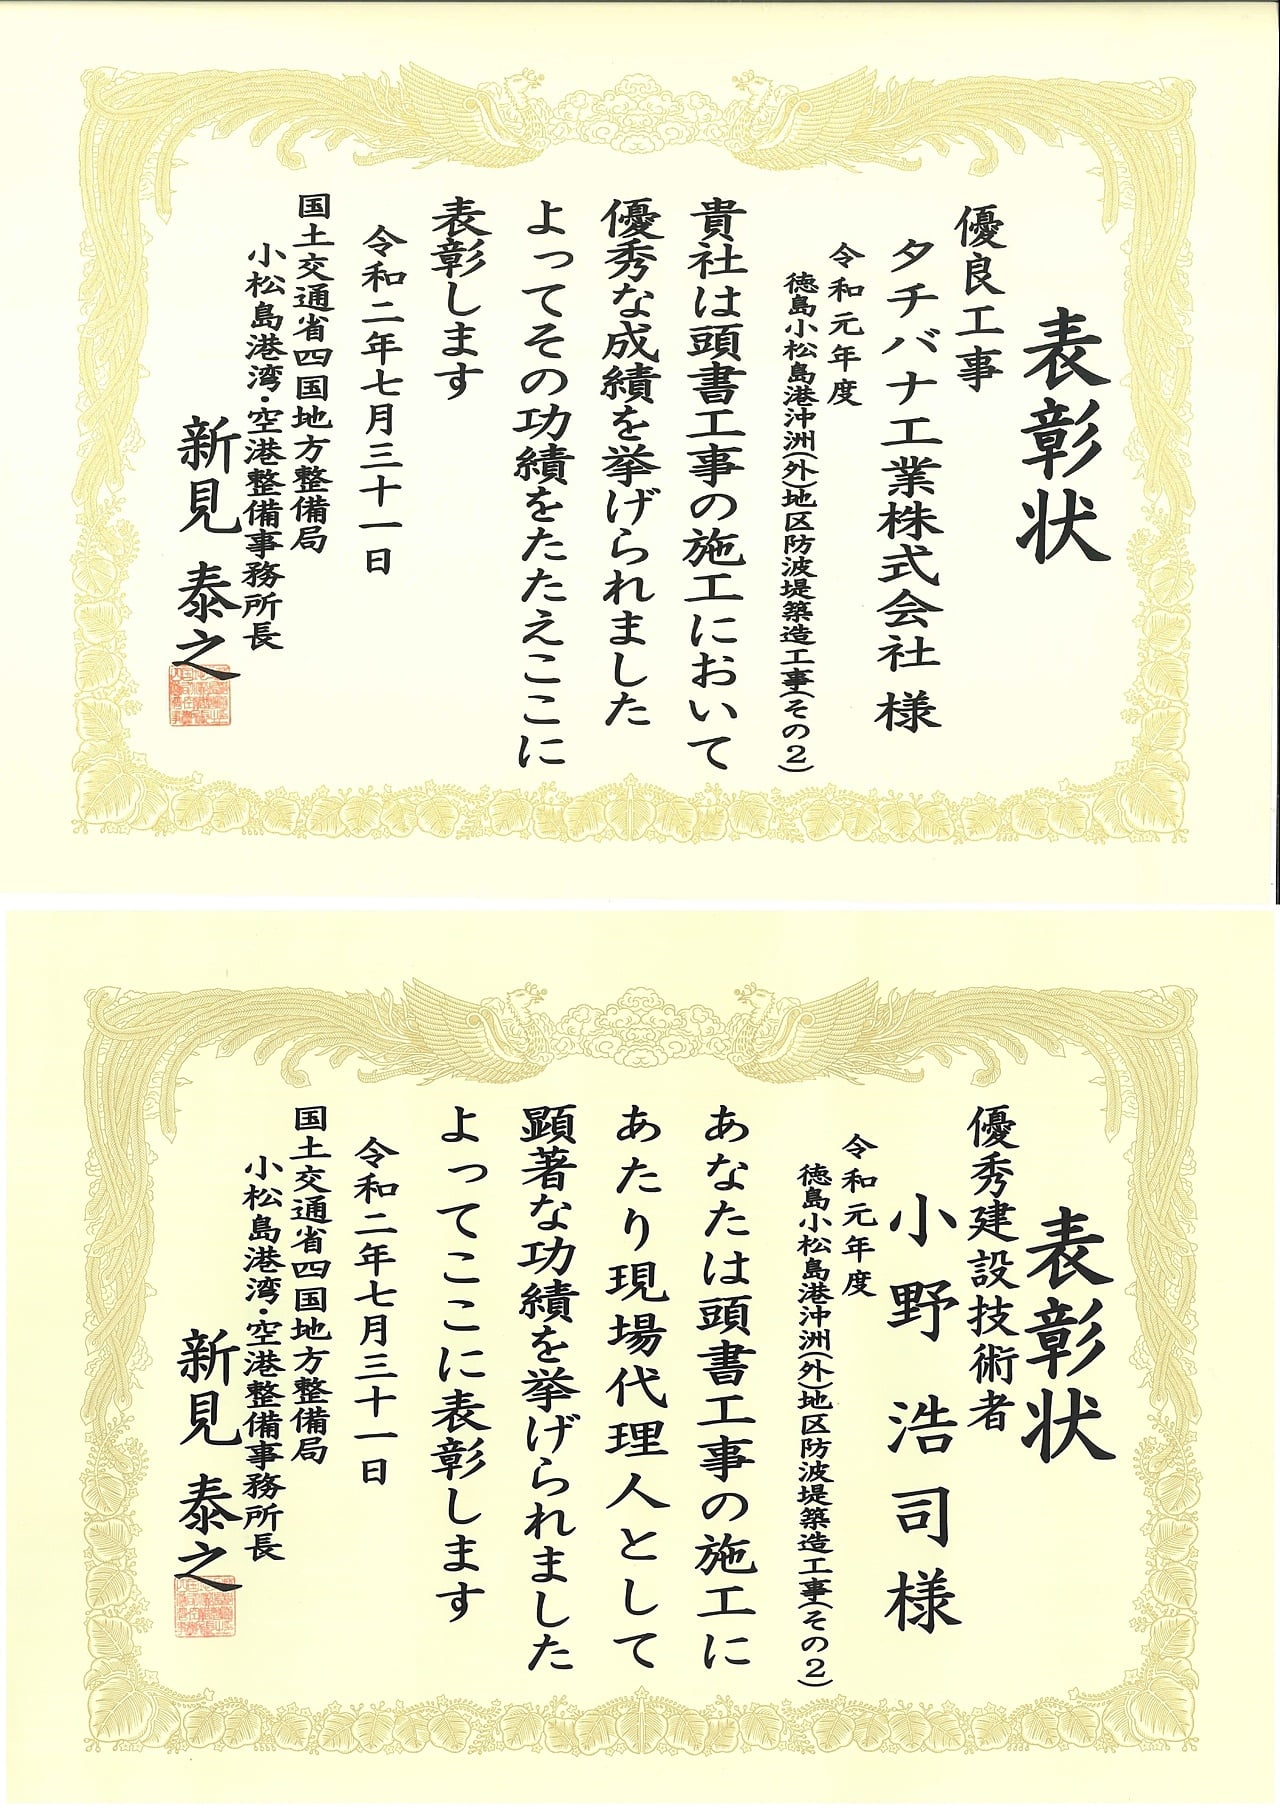 表彰状
優良工事
タチバナ工業株式会社様
令和元年度
徳島小松島港沖洲(外)地区防波堤築造工事(その2)
貴社は頭書工事の施工において
優秀な成績を挙げられました
よってその功績をたたえここに
表彰します
令和二年七月三十一日
国土交通省四国地方整備局
小松島港湾・空港整備事務所長
新見泰之
表彰状
優秀建設技術者
小野浩司様
令和元年度
徳島小松島港沖洲(外)地区防波堤築造工事(その2)
あなたは頭書工事の施工に
あたり現場代理人として
顕著な功績を挙げられました
よってここに表彰します
令和二年七月三十一日
国土交通省四国地方整備局
小松島港湾・空港整備事務所長
新見泰之